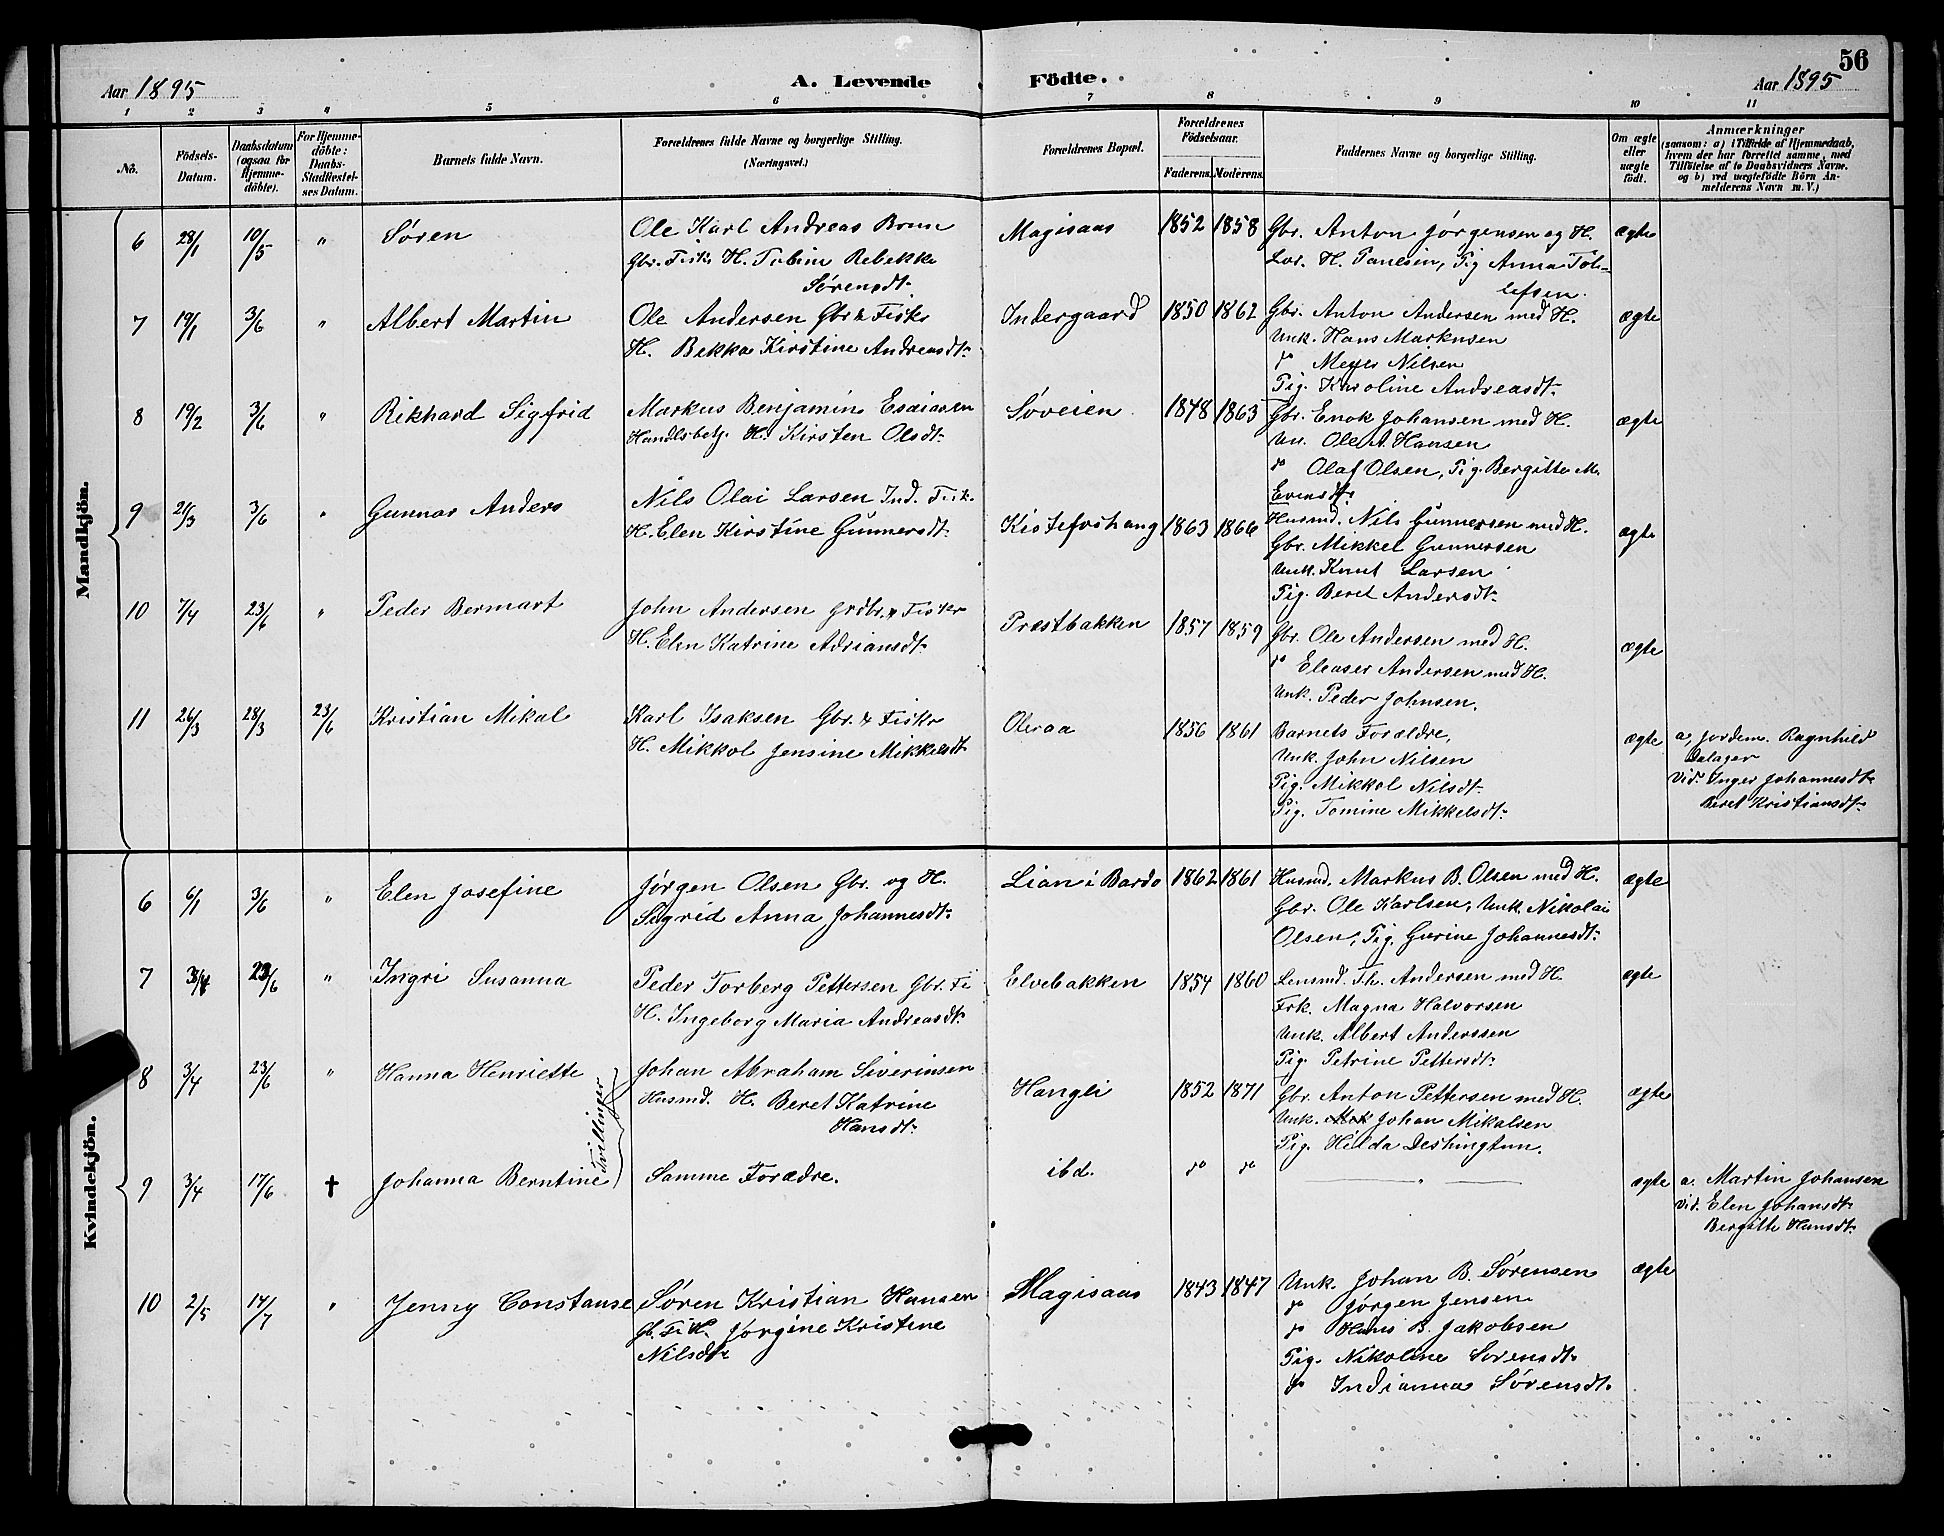 56
Aar 1895
A. Levende Födte.
Aar 1895
1 2 3 4 5 6 7 8 9 10 11
No.
Födsels-Datum.
Daabsdatum (ogsaa for Hjemme-döbte).
For Hjemme-döbte: Daabs-Stadfæstel-ses Datum.
Barnets fulde Navn.
Forældrenes fulde Navne og borgerlige Stilling. (Næringsvei.)
Forældrenes Bopæl.
Forældrenes Födselsaar.
Faderens. Moderens.
Faddernes Navne og borgerlige Stilling.
Om ægte eller uægte födt.
Anmærkninger
(saasom: a) i Tilfælde af Hjemmedaab, hvem der har forrettet samme, med Tilföielse af to Daabsvidners Navne, og b) ved uægtefödte Börn An-melderens Navn m. V.)
Mandkjön.
6 28/1 10/5 " Søren
Ole Karl Andreas Brun
Gbr. Fisk. H. Tobine Rebekke
Sørensdt.
Magisaas 1852 1858
Gbr. Anton Jørgensen og H.
Lor. H. Paulsen, Pig Anna Tol-
lefsen.
ægte
7 19/1 3/6 " Albert Martin
Ole Andersen Gbr & Fiskr
H. Bekka Kirstine Andreasdt.
Indergaard 1850 1862
Gbr. Anton Andersen med H.
Unk. Hans Markusen
do Meyer Nilsen
Pig. Karoline Andreasdt.
ægte
8 19/2 3/6 " Rikhard Sigfrid
Markus Benjamin Esaiasen
Handlsbetj. H. Kirsten Olsdt.
Søveien 1848 1863
Gbr. Enok Johansen med H.
Un. Ole A. Hansen
do Olaf Olsen, Pig. Bergitte M.
Evensdt.
ægte
9 21/3 3/6 " Gunnar Anders
Nils Olai Larsen Ind. Fisk.
H. Elen Kirstine Gunnersdt.
Kistefoshaug 1863 1866
Husmd. Nils Gunnersen med H.
Gbr. Mikkel Gunnersen
Unk. Knut Larsen
Pig. Beret Andersdt.
ægte
10 7/4 23/6 " Peder Bernart
John Andersen grdbr. & Fiskr
H. Elen Katrine Adriansdt.
Præstbakken 1857 1859
Gbr. Ole Andersen med H.
do Eleaser Andersen med H.
Unk. Peder Johnsen.
ægte
11 26/3 28/3 23/6 Kristian Mikal
Karl Isaksen Gbr. & Fiskr
H. Mikkol Jensine Mikkelsdt
Oleraa 1856 1861
Barnets Forældre,
Unk. John Nilsen
Pig. Mikkol Nilsdt.
Pig. Tomine Mikkelsdt.
ægte
a, Jordem. Ragnhild
Dalager
Vid. Inger Johannesdt.
Beret Kristiansdt.
Kvindekjön.
6 6/1 3/6 " Elen Josefine
Jørgen Olsen Gbr. og H.
Sigrid Anna Johannesdt.
Lian i Bardo 1862 1861
Husmd. Markus B. Olsen med H.
Gbr. Ole Karlsen, Unk. Nikolai
Olsen, Pig. Gurine Johannesdt.
ægte
7 3/4 23/6 " Ingri Susanna
Peder Torberg Pettersen Gbr. Fi
H. Ingeborg Maria Andreasdt.
Elvebakken 1854 1860
Lensmd. Th. Andersen med H.
Frk. Magna Halvorsen
Unk. Albert Anderssen
Pig. Petrine Pettersdt.
ægte
8 3/4 23/6 " Hanna Henriette
Tvillinger
Johan Abraham Siverinsen
Husmd. H. Beret Katrine
Hansdt.
Hangli 1852 1871
Gbr. Anton Pettersen med H.
Unk. Johan Mikalsen
Pig. Hilda Deshingtun.
ægte
9 3/4 17/6 † Johanna Berntine
Samme Forædre.
ibd. do do
"
ægte
a. Martin Johansen
Vid. Elen Johansdt.
Bergitte Hansdt.
10 2/5 14/7 " Jenny Constanse
Søren Kristian Hansen
Gb. Fi H. Jørgine Kristine
Nilsdt
Magisaas 1843 1847
Unk. Johan B. Sørensen
do Jørgen Jensen
do Hans B. Jakobsen
Pig. Nikoline Sørensdt.
do Indianna Sørensdt.
ægte